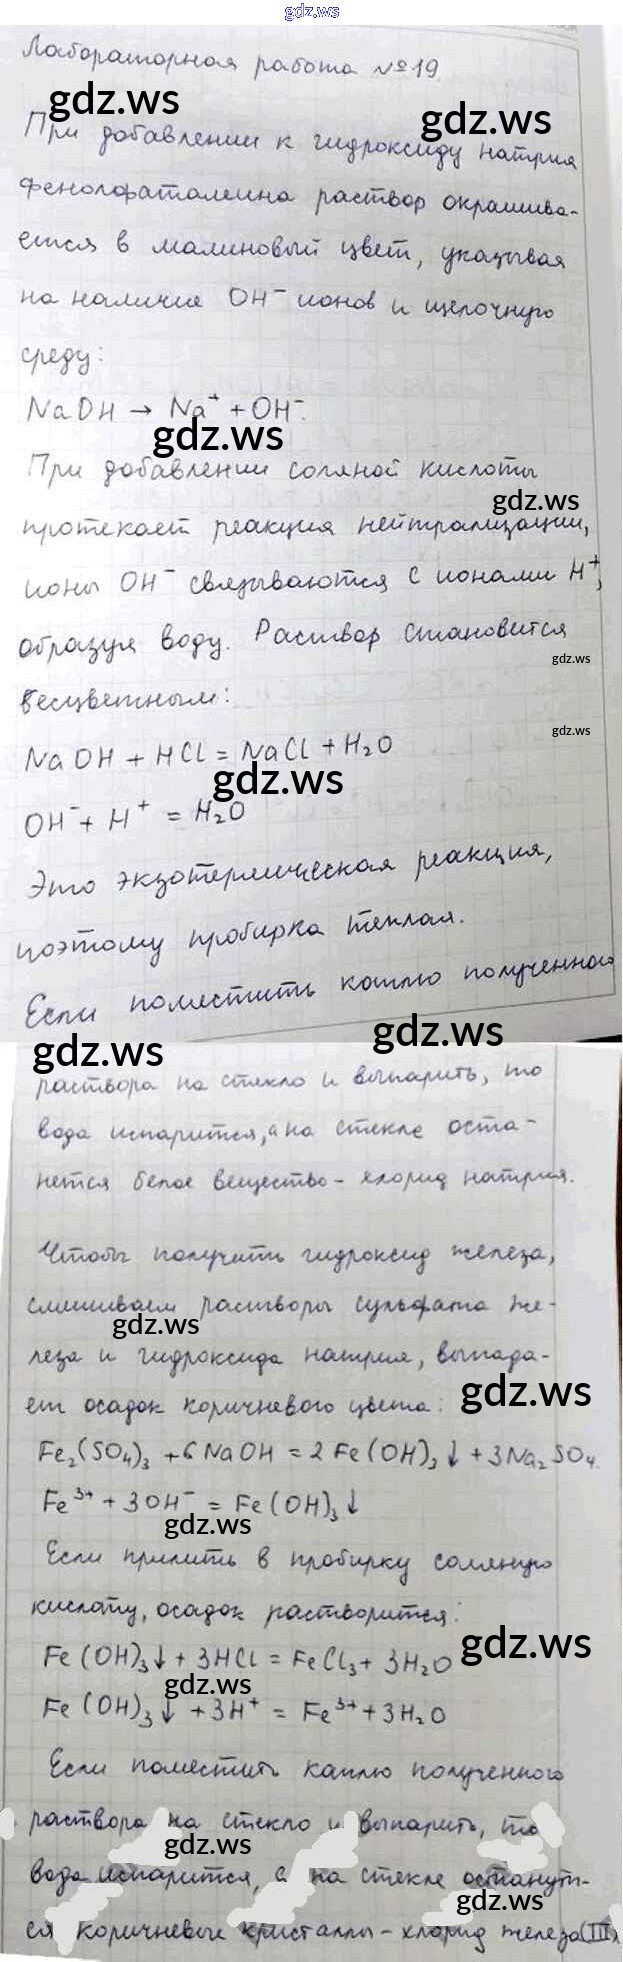 gdz.ws
Лабораторная работа №19.
gdz.ws
gdz.ws
При добавлении к гидроксиду натрия
фенолфталеина раствор окрашива-
ется в малиновый цвет, указывая
на наличие OH⁻ ионов и щелочную
среду:
NaOH → Na⁺ + OH⁻.
gdz.ws
При добавлении соляной кислоты
gdz.ws
протекает реакция нейтрализации,
ионы OH⁻ связываются с ионами H⁺,
образуя воду. Раствор становится
gdz.ws
бесцветным:
gdz.ws
NaOH + HCl = NaCl + H₂O
gdz.ws
OH⁻ + H⁺ = H₂O
Это экзотермическая реакция,
поэтому пробирка теплая.
Если поместить каплю полученного
gdz.ws
gdz.ws
раствора на стекло и выпарить, то
вода испарится, а на стекле оста-
нется белое вещество - хлорид натрия.
Чтобы получить гидроксид железа,
смешиваем растворы сульфата же-
gdz.ws
леза и гидроксида натрия, выпада-
gdz.ws
ет осадок коричневого цвета:
Fe₂(SO₄)₃ + 6NaOH = 2Fe(OH)₃↓ + 3Na₂SO₄.
Fe³⁺ + 3OH⁻ = Fe(OH)₃↓
gdz.ws
Если прилить в пробирку соляную
кислоту, осадок растворится:
gdz.ws
Fe(OH)₃↓ + 3HCl = FeCl₃ + 3H₂O
gdz.ws
Fe(OH)₃↓ + 3H⁺ = Fe³⁺ + 3H₂O
Если поместить каплю полученного
раствора на стекло и выпарить, то
gdz.ws
вода испарится, а на стекле останут-
gdz.ws
ся коричневые кристаллы - хлорид железа (III).